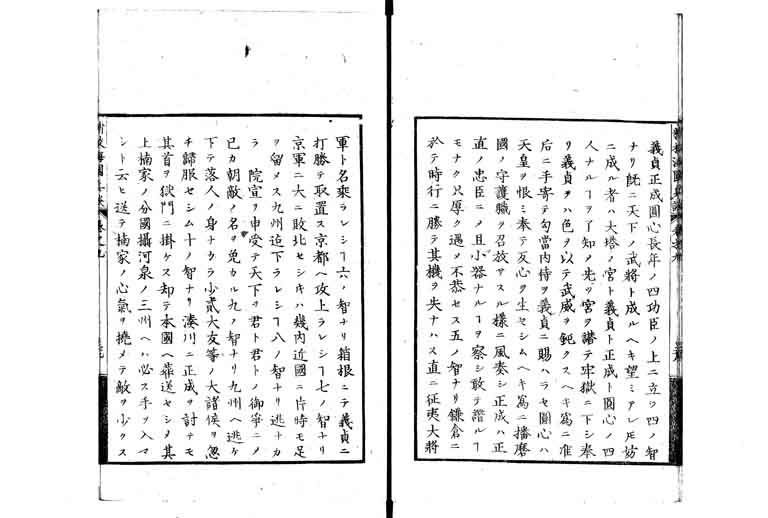 義貞正成圓心長年ノ四功臣ノ上ニ立シ四ノ智
ナリ既ニ天下ノ武將ト成ルヘキ望ミアレ𪜈妨
ニ成ル者ハ大塔ノ宮ト義貞ト正成ト圓心ノ四
人ナルヿヲ了知ノ先ツ宮ヲ譛テ牢獄ニ下シ奉
リ義貞ヲハ色ヲ以テ武威ヲ鈍クスヘキ爲ニ准
后ニ手寄テ勾當内侍ヲ義貞ニ賜ハラセ圓心ハ
天皇ヲ恨ミ奉テ反心ヲ生セシムヘキ爲ニ播磨
國ノ守護職ヲ召放サスル樣ニ風奏シ正成ハ正
直ノ忠臣ニノ且小器ナルヿヲ察シ敢テ譛ルヿ
モナク只厚ク遇メ不恭セス五ノ智ナリ鎌倉ニ
於テ時行ニ勝テ其機ヲ失ナハス直ニ征夷大將
軍ト名乘ラレシヿ六ノ智ナリ箱根ニテ義貞ニ
打勝テ取置ス京都ヘ攻上ラレシヿ七ノ智ナリ
京軍ニ大ニ敗北セシキハ幾内近國ニ片時モ足
ヲ留メス九州迄下ラレシヿ八ノ智ナリ逃ナカ
ラ 院宣ヲ申受テ天下ヲ君ト君トノ御爭ニノ
已カ朝敵ノ名ヲ免カル九ノ智ナリ九州ヘ逃ケ
下テ落人ノ身ナカラ少貳大友等ノ大諸侯ヲ忽
チ歸服セシム十ノ智ナリ湊川ニ正成ヲ討テモ
其首ヲ獄門ニ掛ケス却テ本國ヘ葬送セシメ其
上楠家ノ分國攝河泉ノ三州ヘハ必ス手ヲ入マ
シト云ヒ送テ楠家ノ心氣ヲ撓メテ敵ヲ少クス